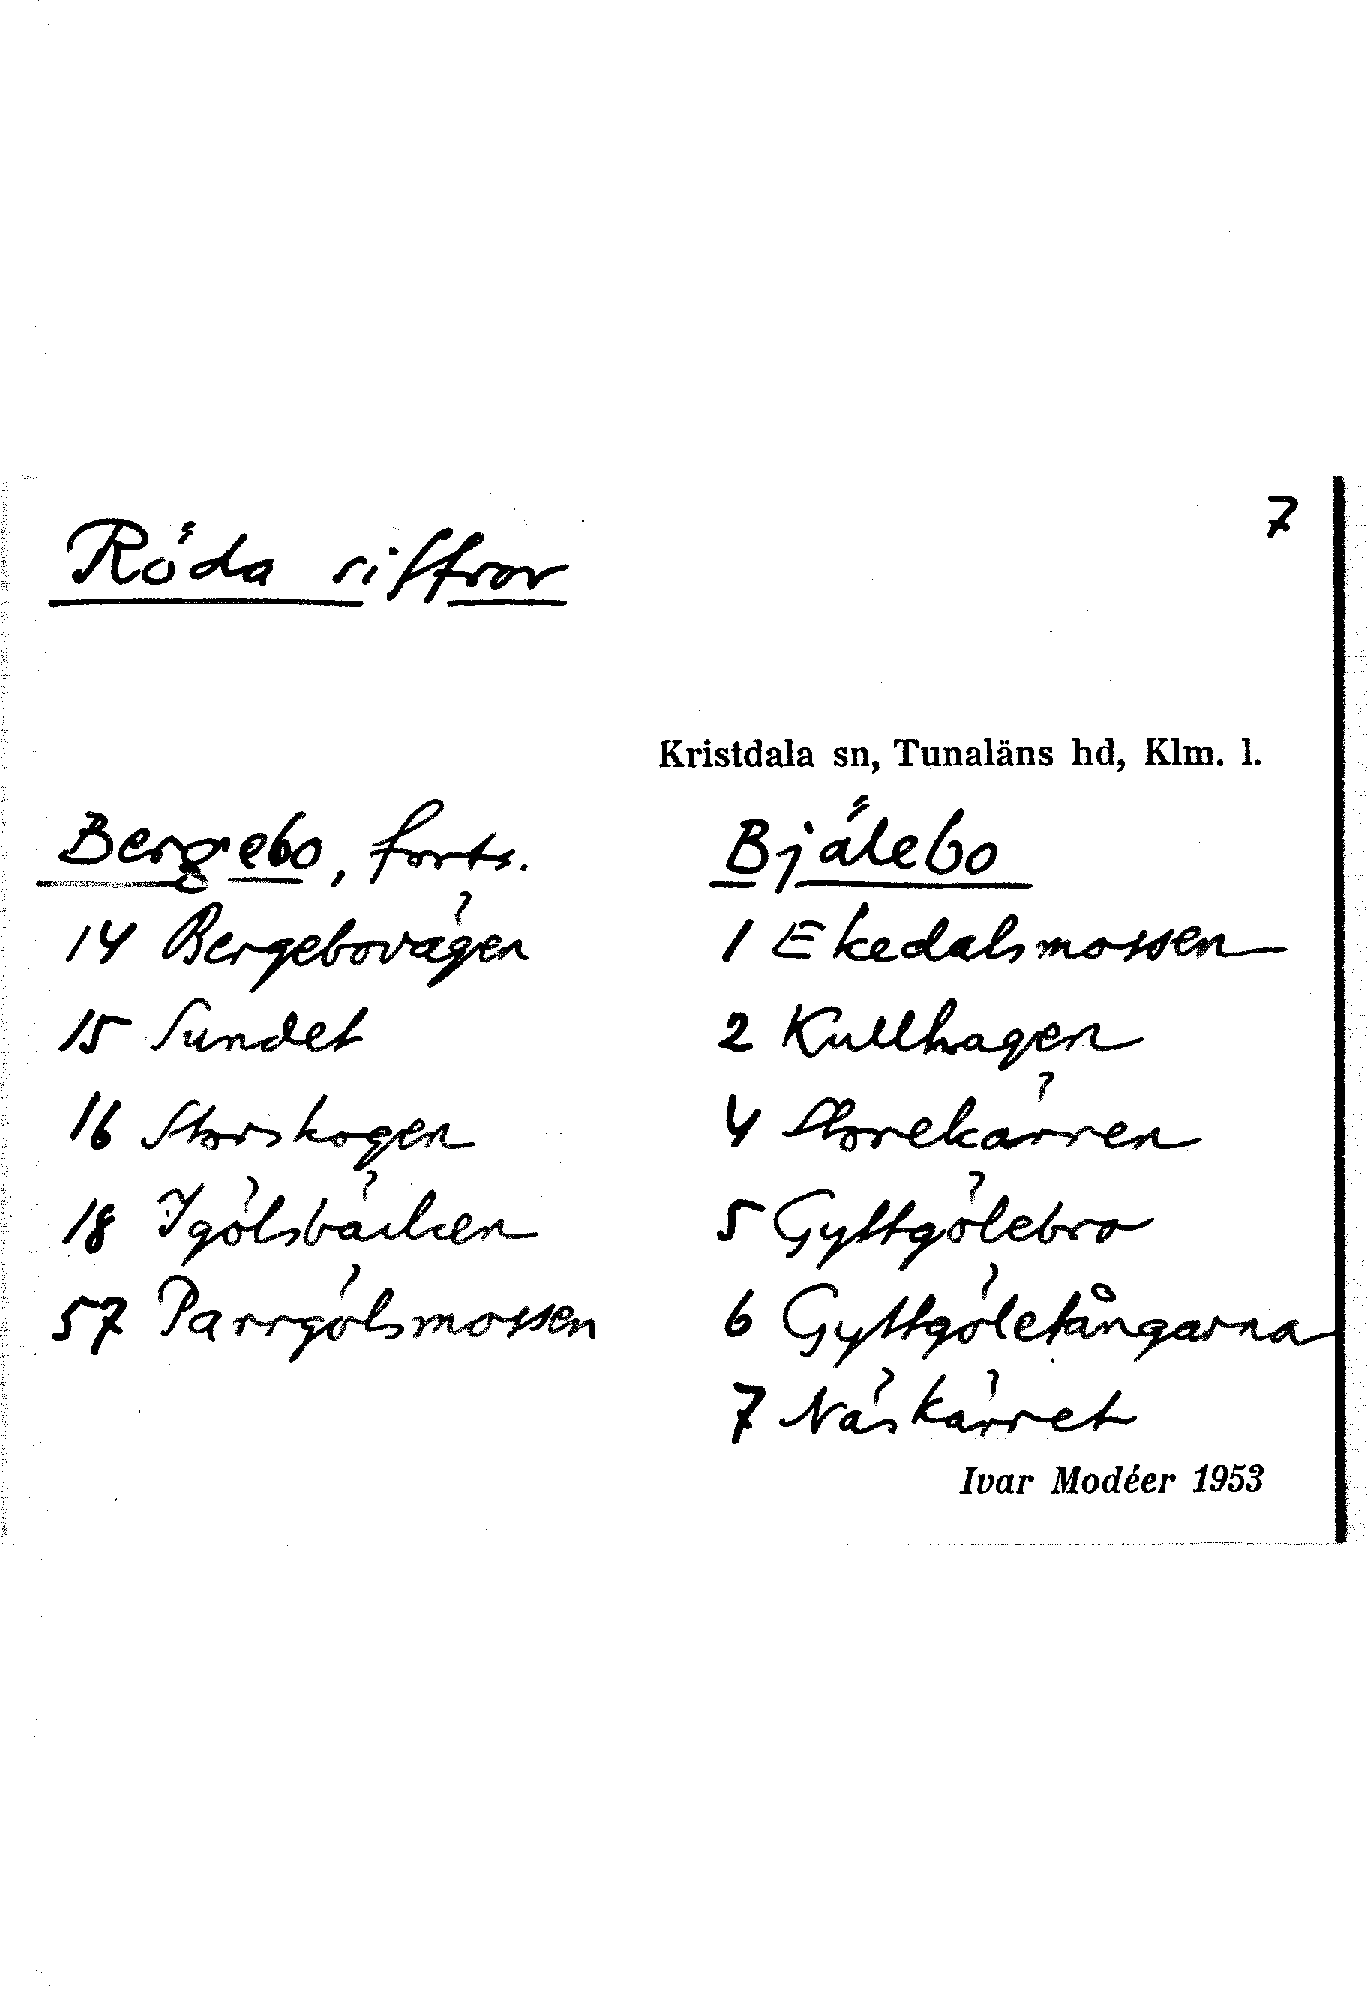 7
Röda siffror
Kristdala sn, Tunaläns hd, Klm. l.
Bergebo, forts.
14 Bergebovägen
15 Sundet
16 Storskogen
18 Igölsbäcken
57 Parrgölsmossen
Bjälebo
1 Ekedalsmossen
2 Kullhagen
4 Storekärren
5 Gyttgölebro
6 Gyttgöletångarna
7 Näskärret
Ivar Modéer 1953